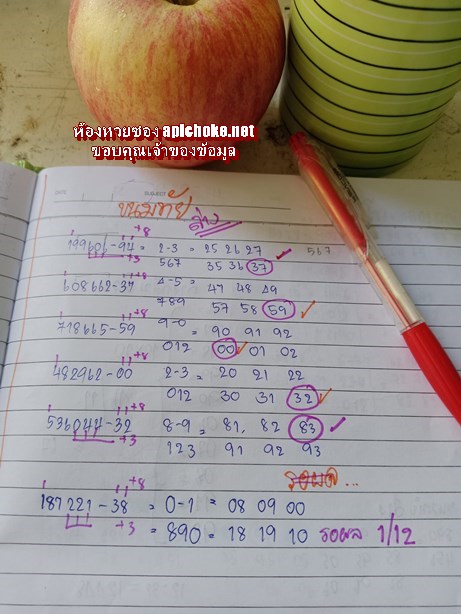 ห้องหวยซอง apichoke.net
ขอบคุณเจ้าของข้อมูล
DATE SUBJECT
ขนมทัย ล่าง
+8
199601-94 = 2-3 = 25 26 27 567
+3 567 35 36 37
+8
608662-37 4-5 = 47 48 49
789 57 58 59
+8
718665-59 9-0 = 90 91 92
012 00 01 02
+8
482962-00 2-3 = 20 21 22
012 30 31 32
+8
536044-32 8-9 = 81, 82 83
+3 123 91 92 93
รอผล...
+8
187221-38 = 0-1 = 08 09 00
+3 = 890 = 18 19 10 รอผล 1/12